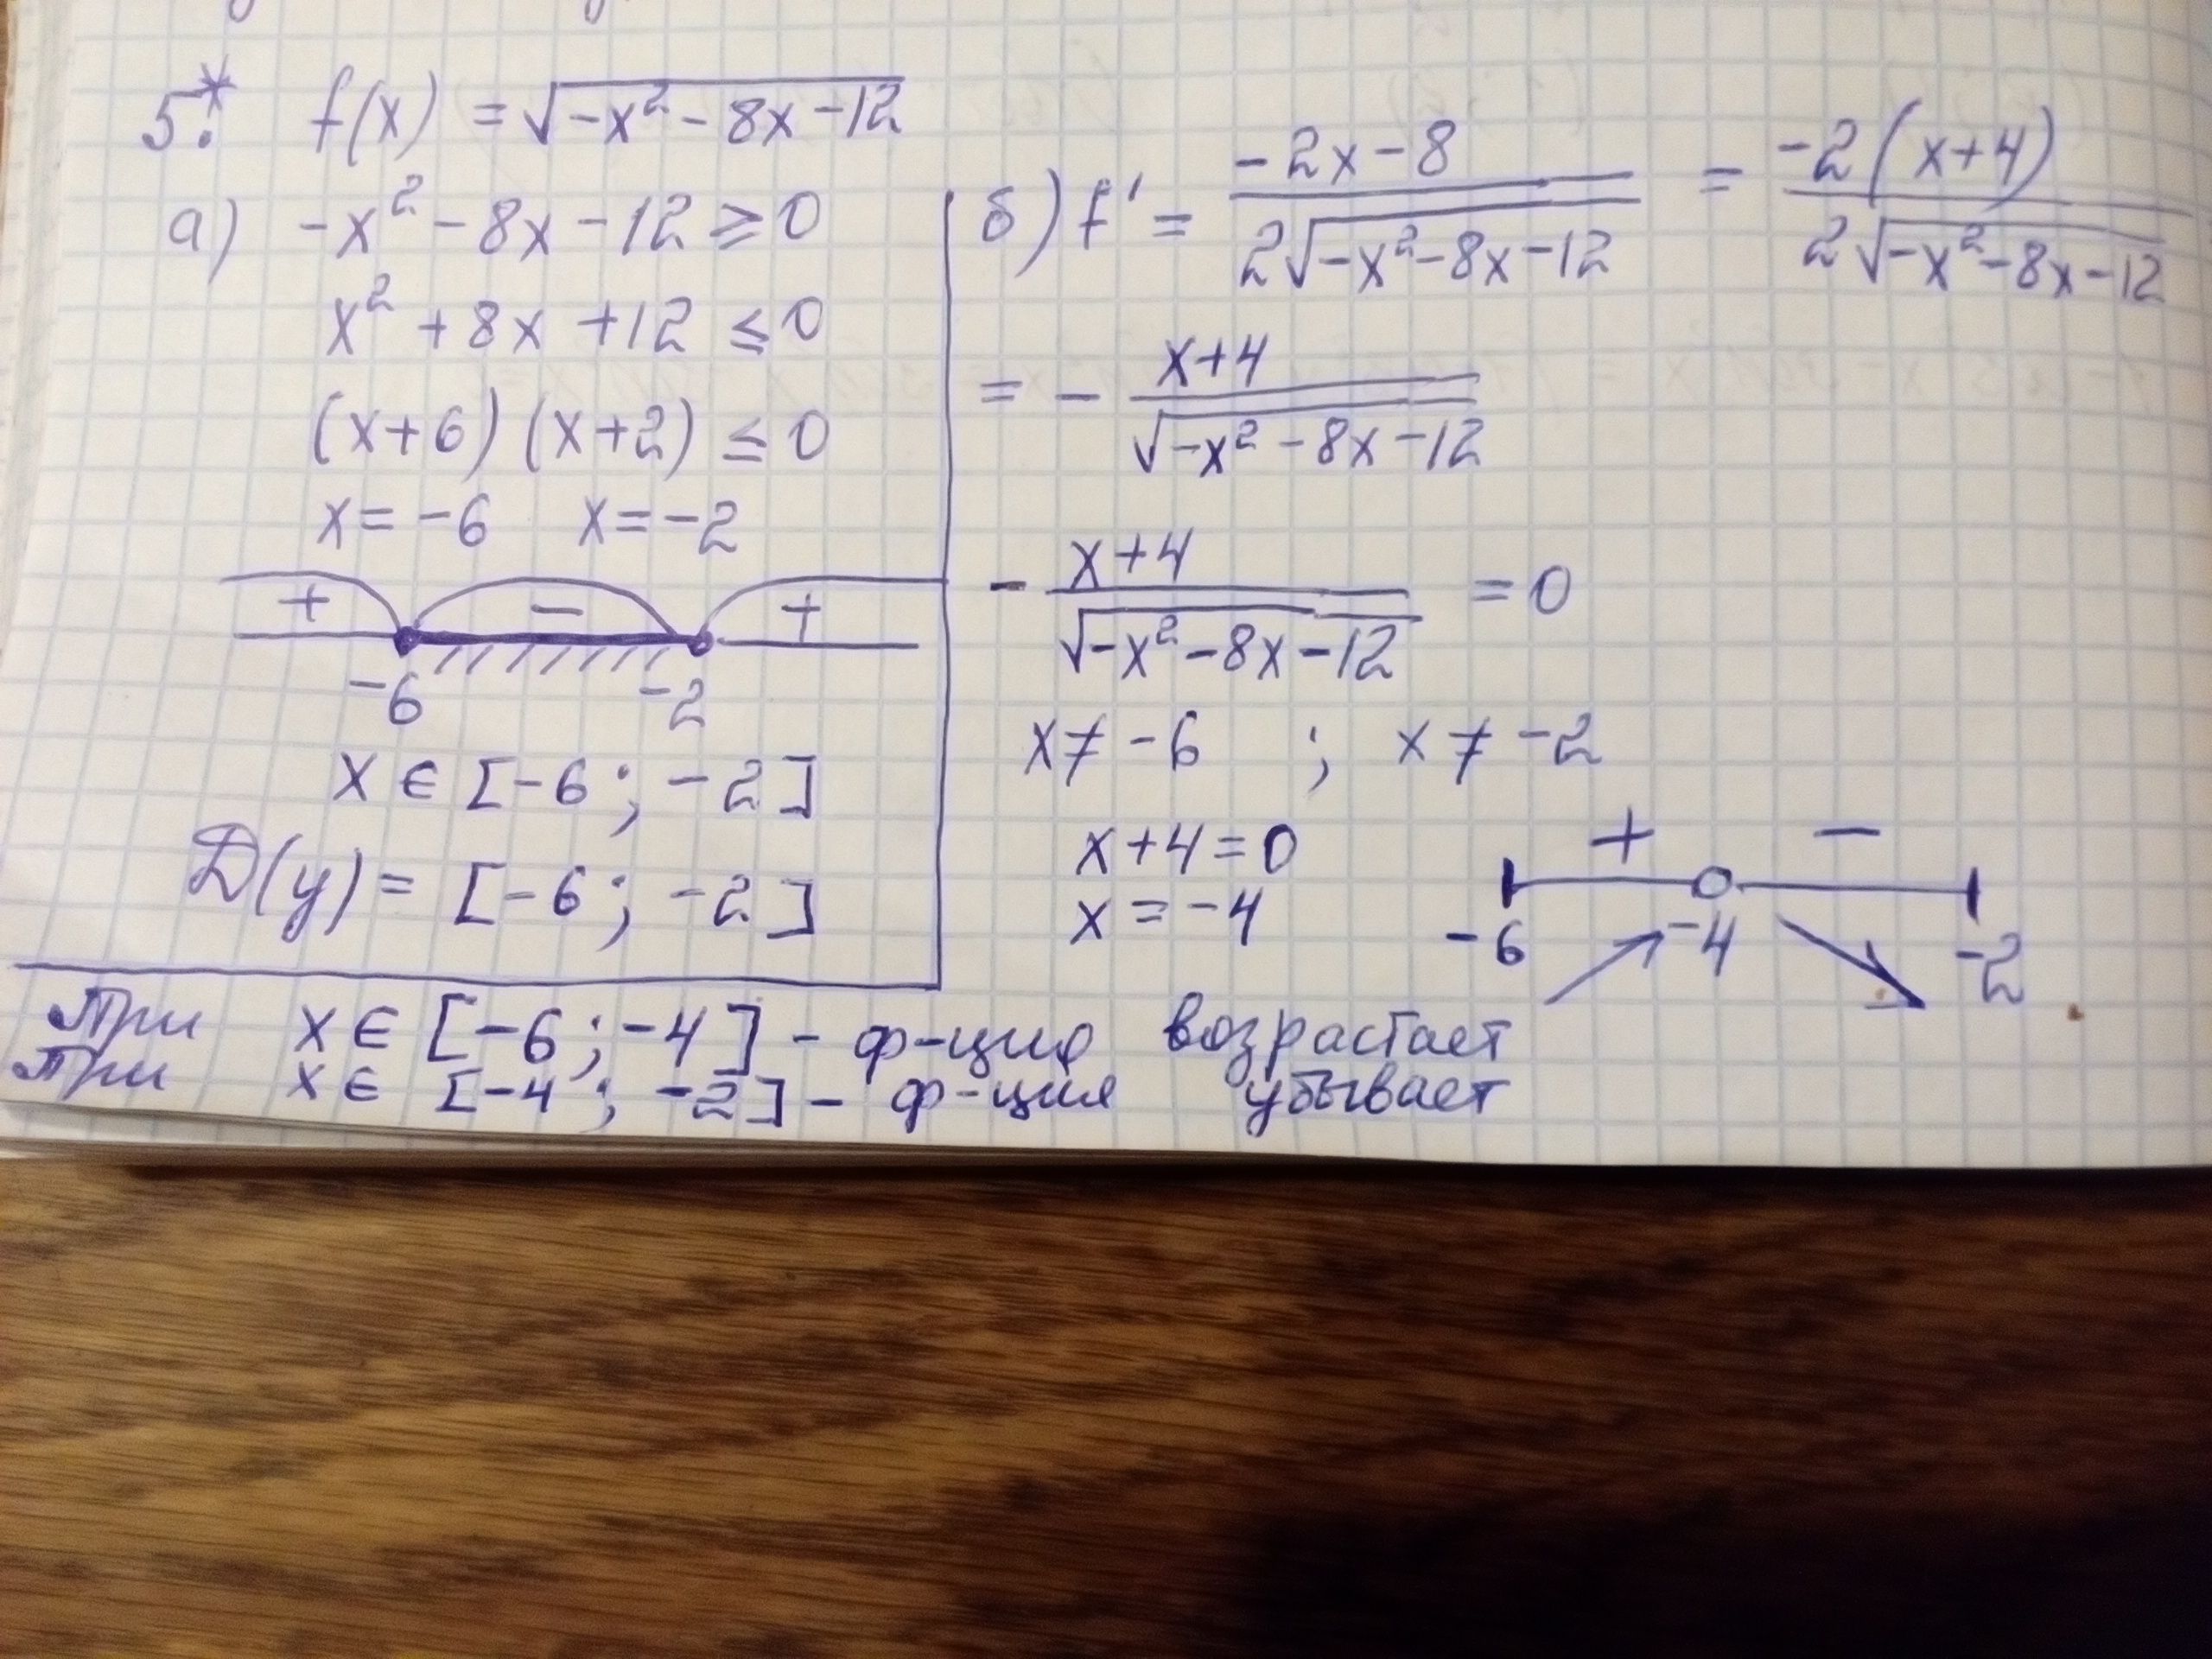 5.* f(x) = √(-x² - 8x - 12)
а) -x² - 8x - 12 ≥ 0
x² + 8x + 12 ≤ 0
(x+6) (x+2) ≤ 0
x = -6 x = -2
+ - +
-6 -2
x ∈ [-6 ; -2]
D(y) = [-6 ; -2]
б) f' = (-2x - 8)/(2√(-x² - 8x - 12)) = (-2(x+4))/(2√(-x² - 8x - 12))
= - (x+4)/(√(-x² - 8x - 12))
- (x+4)/(√(-x² - 8x - 12)) = 0
x ≠ -6 ; x ≠ -2
x+4 = 0
x = -4
+ -
-6 -4 -2
При x ∈ [-6 ; -4] - ф-цию возрастает
При x ∈ [-4 ; -2] - ф-ция убывает